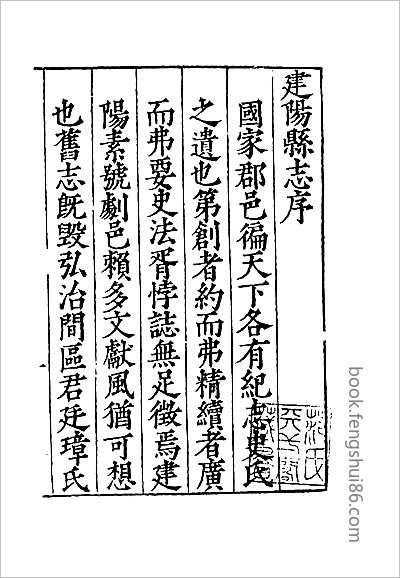 建陽縣志序
國家郡邑徧天下各有紀志史氏
之遺也第創者約而弗精續者廣
而弗要史法胥悖誌無足徵焉建
陽素號劇邑賴多文獻風猶可想
也舊志旣毀弘治間區君廷璋氏
book.fengshui86.com